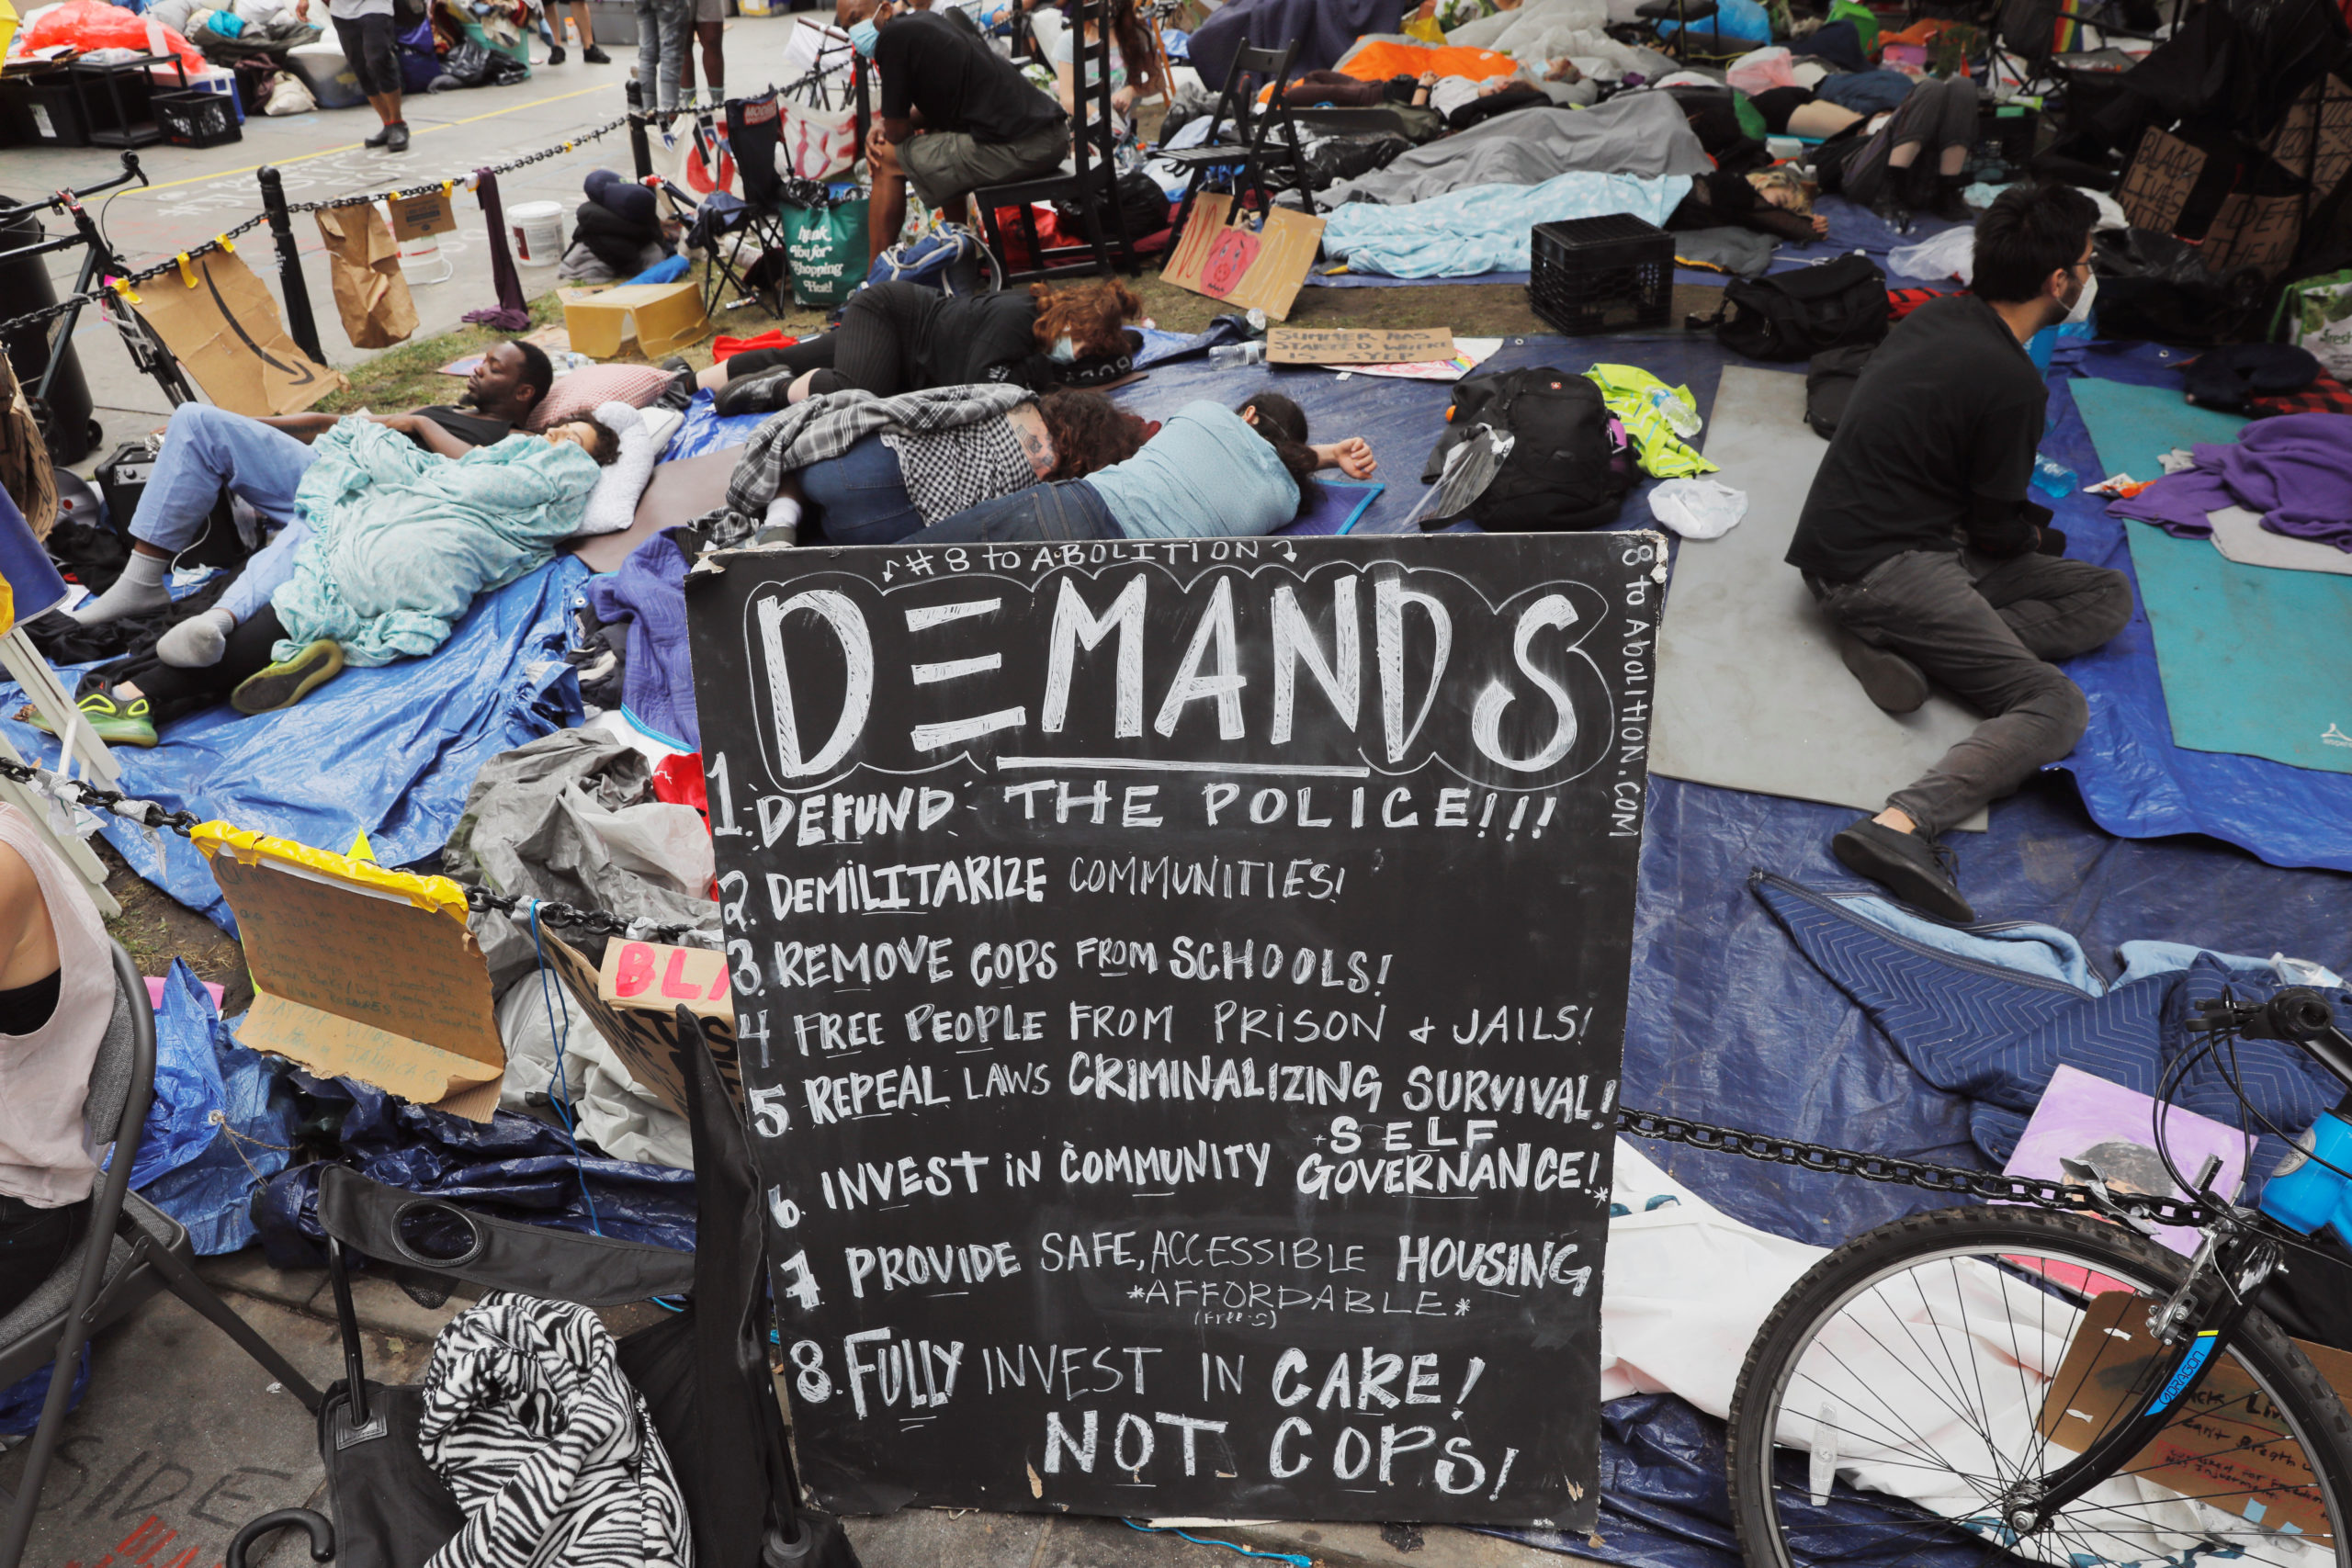 #8 to ABOLITION
DEMANDS
1. DEFUND THE POLICE!!!
2. DEMILITARIZE COMMUNITIES!
3. REMOVE COPS FROM SCHOOLS!
4 FREE PEOPLE FROM PRISON & JAILS!
5 REPEAL LAWS CRIMINALIZING SURVIVAL!
+SELF
6. INVEST IN COMMUNITY GOVERNANCE!
7 PROVIDE SAFE, ACCESSIBLE HOUSING
*AFFORDABLE*
(Free :)
8. FULLY INVEST IN CARE!
NOT COPS!
8 to AbOLITION.COM
SUMMER HAS
STARTED WHERE
IS SYEP
BLACK
LIVES
Thank
You for
Shopping
Here!
NO
BLA
SIDE
DRAGON